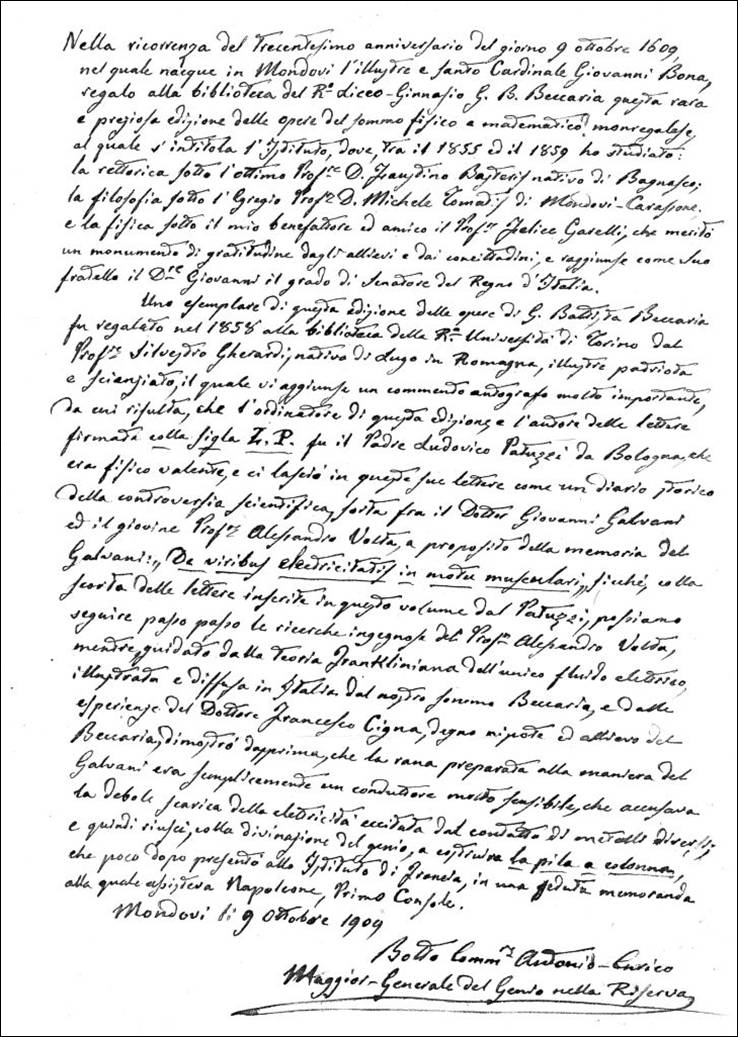 Nella ricorrenza del trecentesimo anniversario del giorno 9 ottobre 1609
nel quale nacque in Mondovì l'illustre e santo Cardinale Giovanni Bona,
regalo alla biblioteca del R.o Liceo-Ginnasio G. B. Beccaria questa rara
e preziosa edizione delle opere del sommo fisico e matematico monregalese,
al quale s'intitola l'Istituto, dove, tra il 1855 ed il 1859 ho studiato:
la rettorica sotto l'ottimo Prof.re D. Basteris nativo di Bagnasco;
la filosofia sotto l'Egregio Prof.re D. Michele Tomatis di Mondovì-Carassone;
e la fisica sotto il mio benefattore ed amico il Prof.re Felice Garelli, che meritò
un monumento di gratitudine dagli allievi e dai concittadini, e raggiunse come suo
fratello il D.re Giovanni il grado di Senatore del Regno d'Italia.
Uno esemplare di questa edizione delle opere di G. Battista Beccaria
fu regalato nel 1858 alla biblioteca della R.a Università di Torino dal
Prof.re Silvestro Gherardi, nativo di Lugo in Romagna, illustre patriota
e scienziato, il quale vi aggiunse un commento autografo molto importante,
da cui risulta, che l'ordinatore di questa edizione e l'autore delle lettere
firmate colla sigla L. P. fu il Padre Ludovico Patuzzi da Bologna, che
era fisico valente, e ci lasciò in queste sue lettere come un diario storico
della controversia scientifica, sorta fra il Dottor Giovanni Galvani
ed il giovine Prof.re Alessandro Volta, a proposito della memoria del
Galvani: „De viribus electricitatis in motu musculari„ sicché, colla
scorta delle lettere inserite in questo volume dal Patuzzi, possiamo
seguire passo passo le ricerche ingegnose del Prof.re Alessandro Volta,
mentre, guidato dalla teoria Frankliniana dell'unico fluido elettrico,
illustrata e diffusa in Italia dal nostro sommo Beccaria, e dalle
esperienze del Dottore Francesco Cigna, degno nipote ed allievo del
Beccaria, dimostrò dapprima, che la rana preparata alla maniera del
Galvani era semplicemente un conduttore molto sensibile, che accusava
la debole scarica della elettricità eccitata dal contatto di metalli diversi;
e quindi riuscì, colla divinazione del genio, a costruire la pila a colonna,
che poco dopo presentò allo Istituto di Francia, in una seduta memoranda
alla quale assisteva Napoleone, Primo Console.
Mondovì li 9 Ottobre 1909
Botto Comm.re Antonio-Enrico
Maggior-Generale del Genio nella Riserva